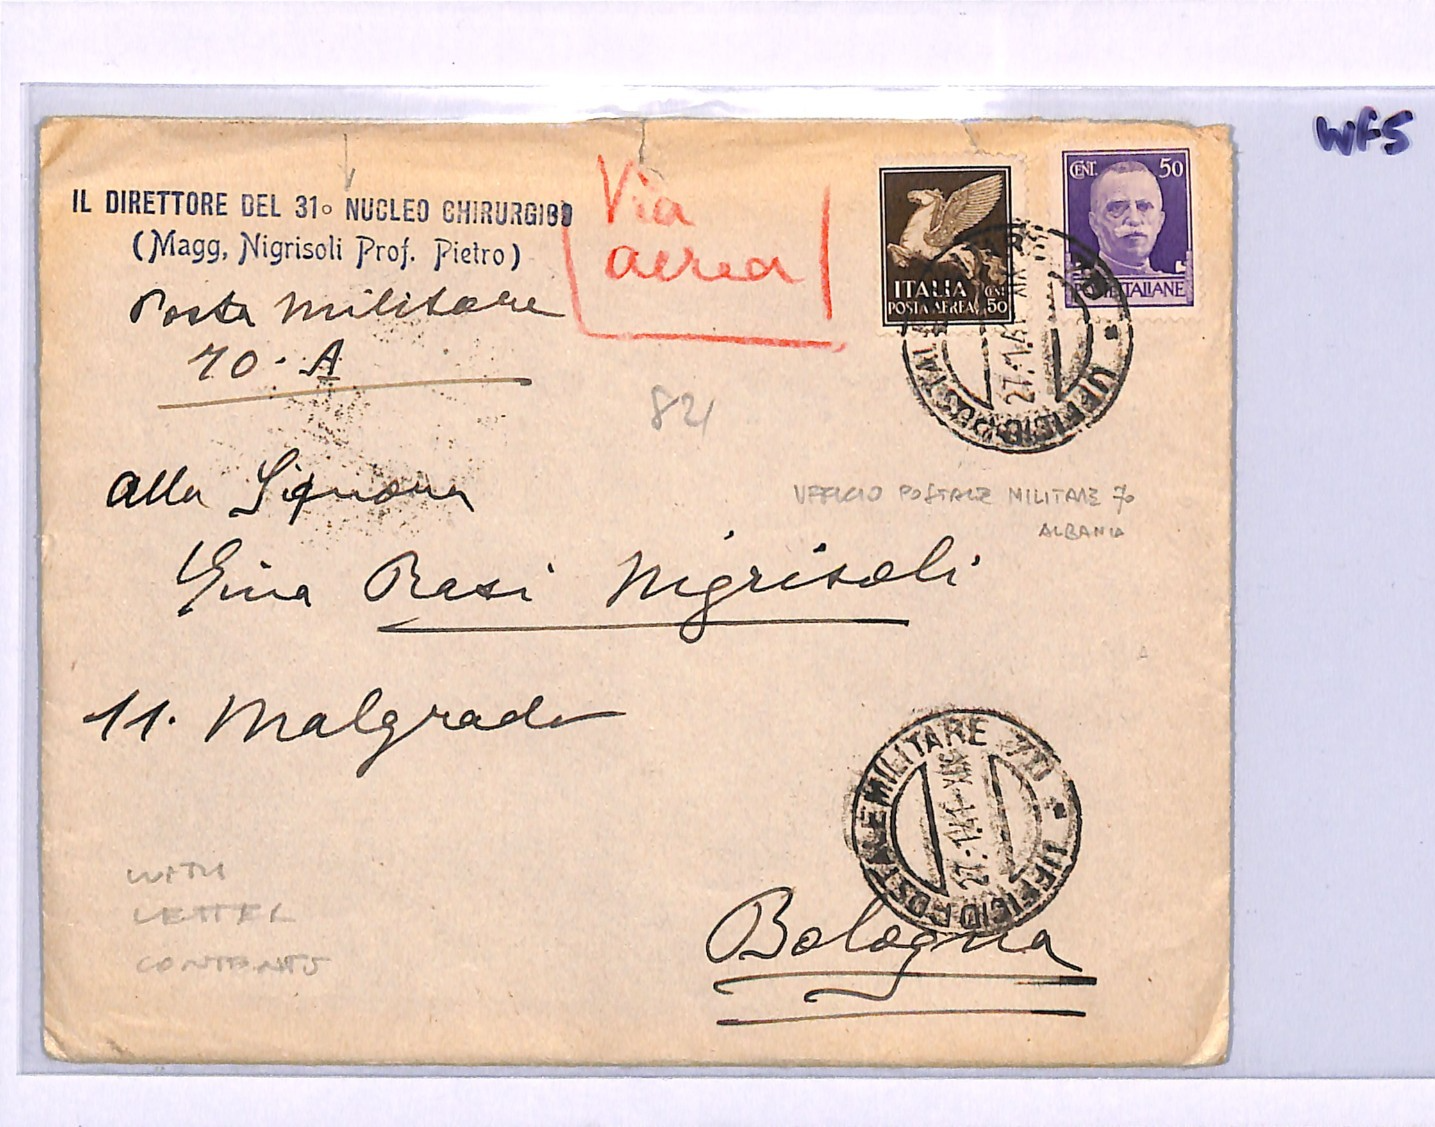 WFS
IL DIRETTORE DEL 31º NUCLEO CHIRURGICO
(Magg, Nigrisoli Prof. Pietro)
Posta Militare
70 - A
Via
aerea
ITALIA CENT. 50
POSTA AEREA
CENT. 50
POSTE ITALIANE
UFFICIO POSTALE MILITARE
27.1.41 XIX
82
UFFICIO POSTALE MILITARE 70
ALBANIA
alla Signora
Gina Rasi Nigrisoli
11. Malgrado
UFFICIO POSTALE MILITARE 70
27.1.41-XIX
Bologna
WITH
LETTER
CONTENTS